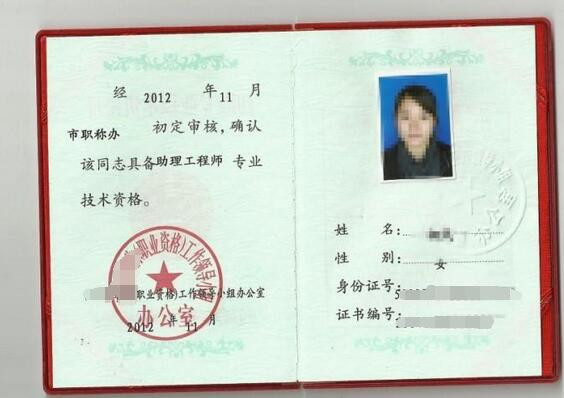 经 2012 年 11 月
市职称办 初定审核，确认
该同志具备助理工程师 专业
技术资格。
职业资格)工作领导小
职业资格)工作领导小组办公室
办公室
2012 年 11 月
姓 名:
性 别: 女
身份证号:5
证书编号: